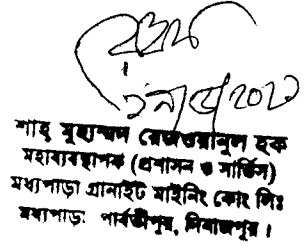 শাহ্ মুহাম্মদ রেজওয়ানুল হক
মহাব্যবস্থাপক (প্রশাসন ও সার্ভিস)
মধ্যপাড়া গ্রানাইট মাইনিং কোং লিঃ
মধ্যপাড়া পার্বতীপুর, দিনাজপুর।